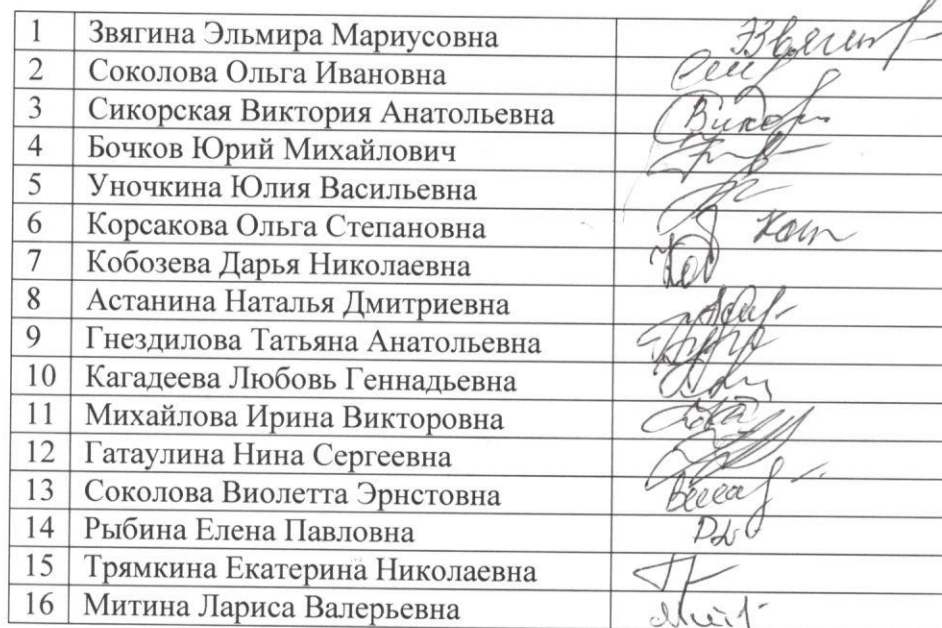 1 Звягина Эльмира Мариусовна
2 Соколова Ольга Ивановна
3 Сикорская Виктория Анатольевна
4 Бочков Юрий Михайлович
5 Уночкина Юлия Васильевна
6 Корсакова Ольга Степановна
7 Кобозева Дарья Николаевна
8 Астанина Наталья Дмитриевна
9 Гнездилова Татьяна Анатольевна
10 Кагадеева Любовь Геннадьевна
11 Михайлова Ирина Викторовна
12 Гатаулина Нина Сергеевна
13 Соколова Виолетта Эрнстовна
14 Рыбина Елена Павловна
15 Трямкина Екатерина Николаевна
16 Митина Лариса Валерьевна